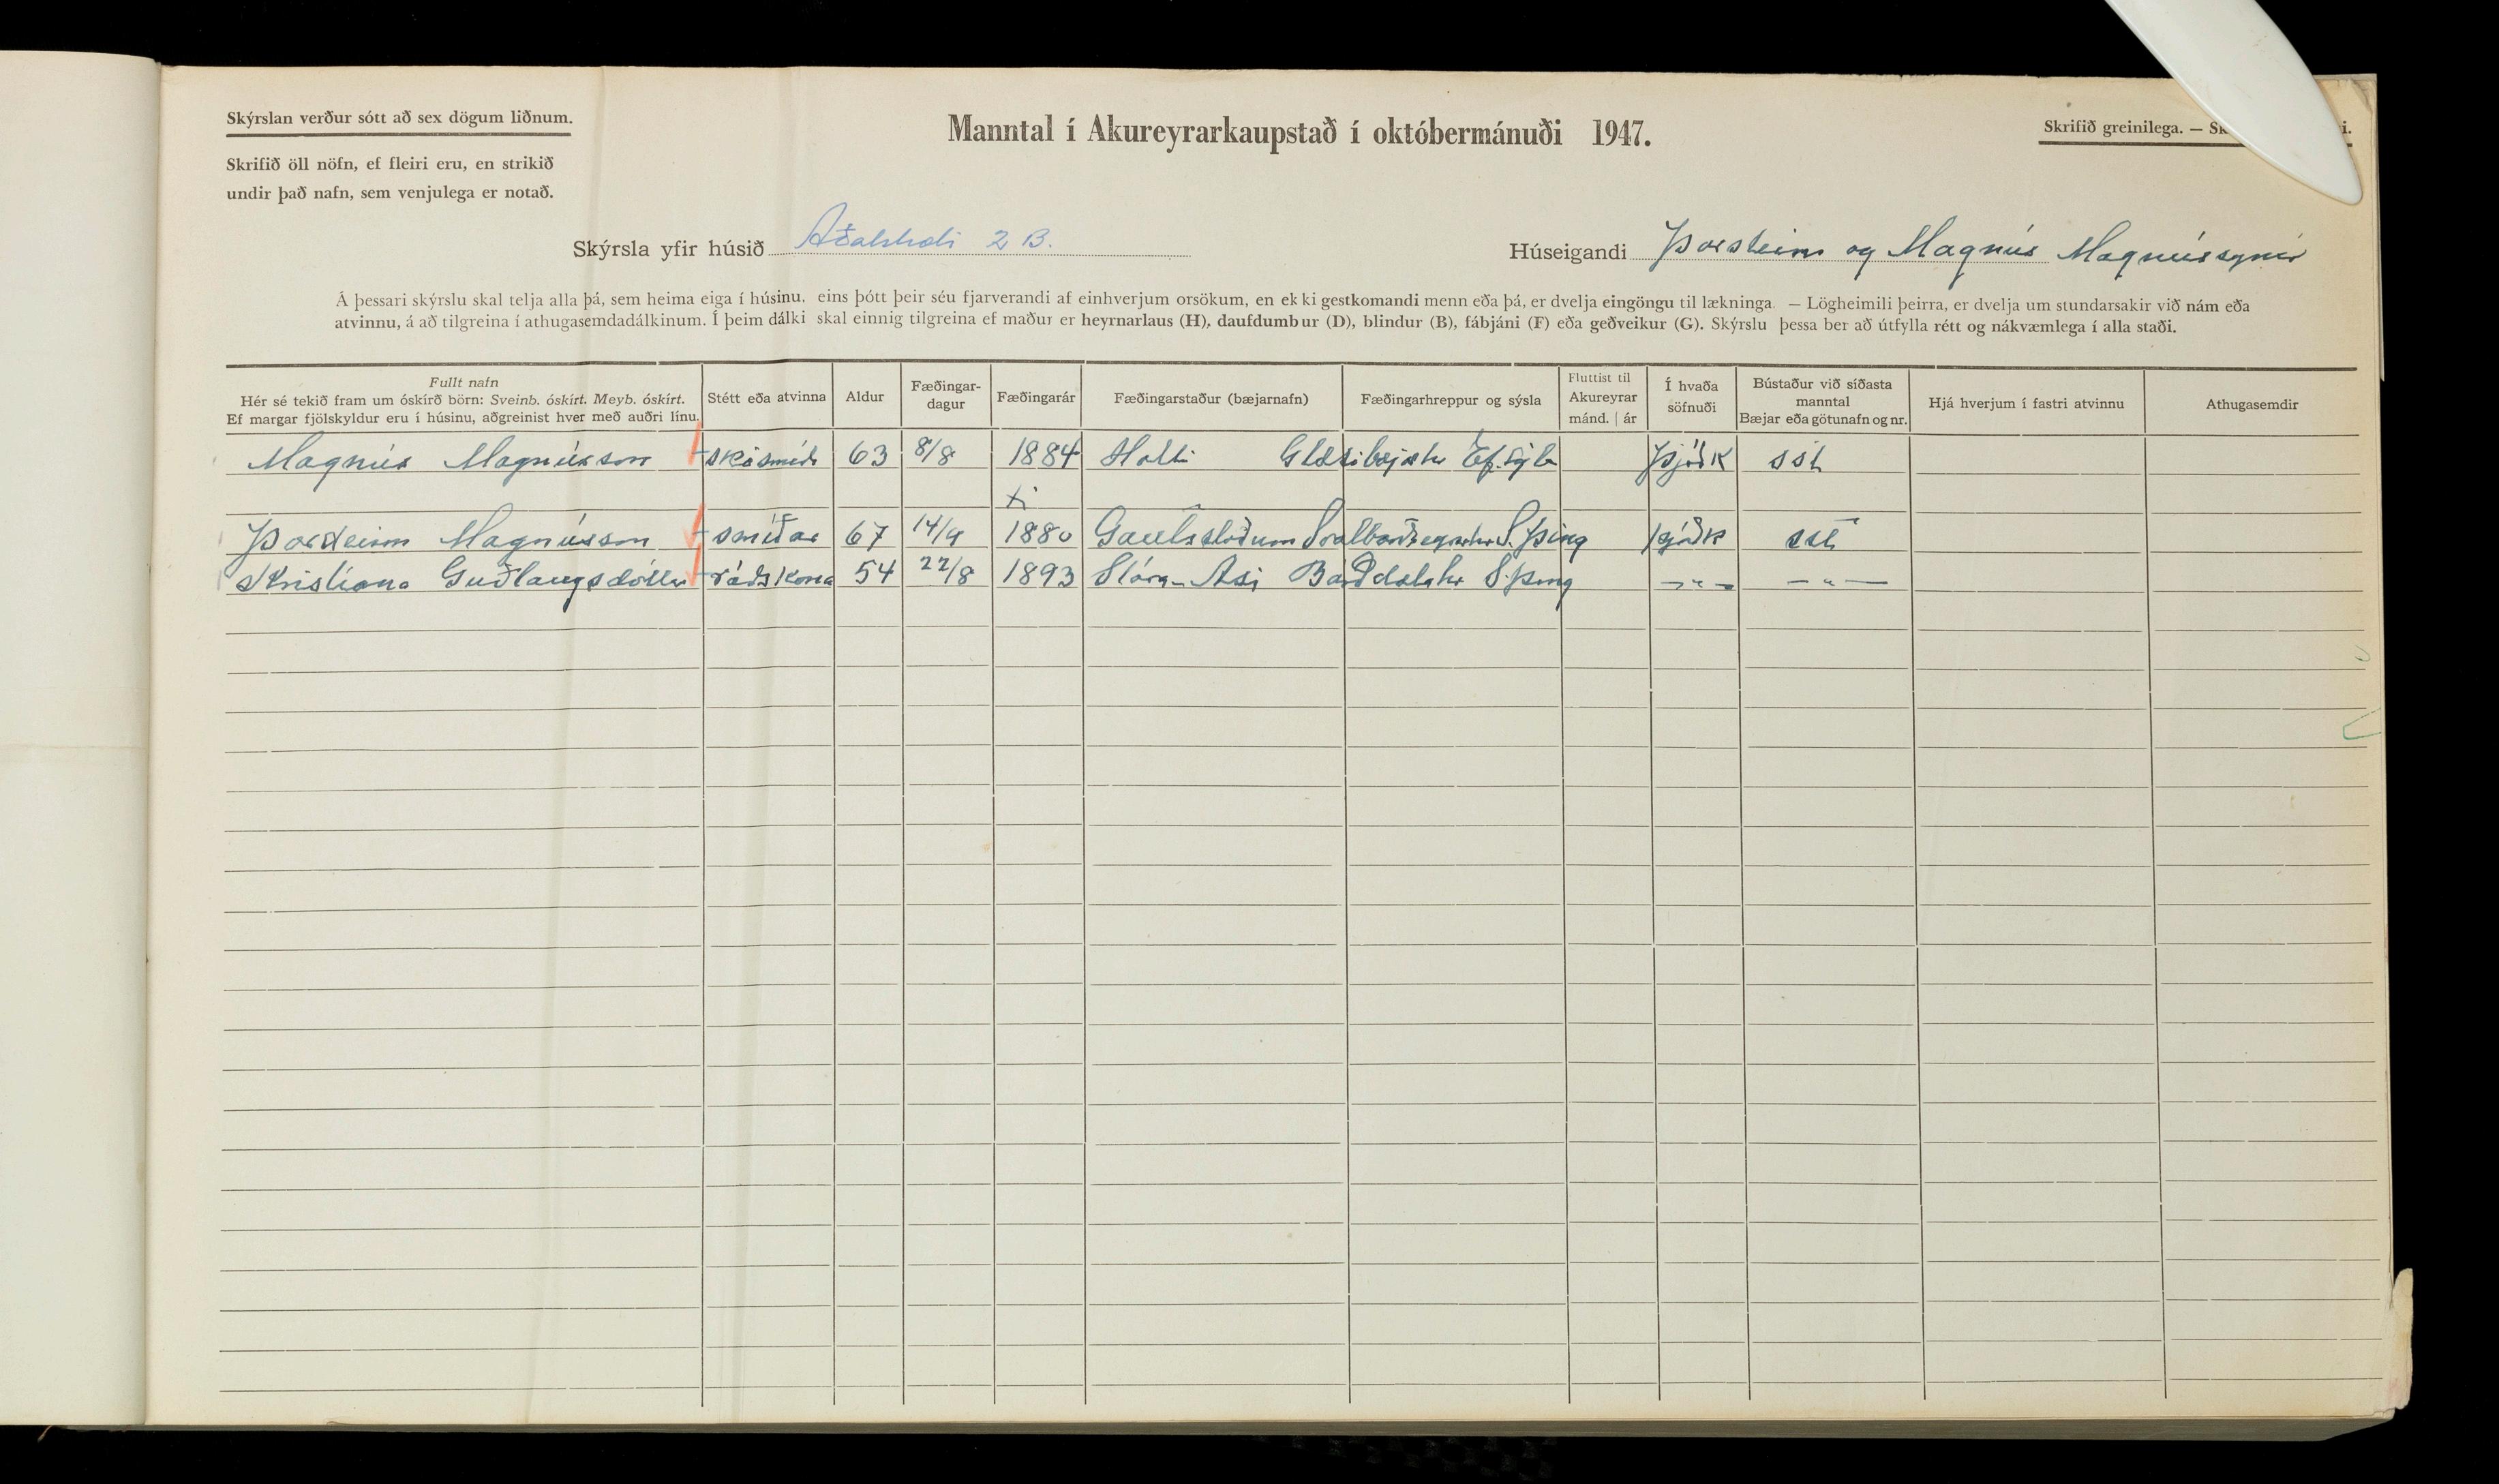 Skýrslan verður sótt að sex dögum liðnum.
Skrifið öll nöfn, ef fleiri eru, en strikið
undir það nafn, sem venjulega er notað.
Manntal í Akureyrarkaupstað í októbermánuði 1947.
Skrifið greinilega. —
Skýrsla yfir húsið Aðalstræti 2 B.
Húseigandi Þorsteinn og Magnús Magnússynir
Á þessari skýrslu skal telja alla þá, sem heima eiga í húsinu, eins þótt þeir séu fjarverandi af einhverjum orsökum, en ekki gestkomandi menn eða þá, er dvelja eingöngu til lækninga. — Lögheimili þeirra, er dvelja um stundarsakir við nám eða
atvinnu, á að tilgreina í athugasemdadálkinum. Í þeim dálki skal einnig tilgreina ef maður er heyrnarlaus (H), daufdumbur (D), blindur (B), fábjáni (F) eða geðveikur (G). Skýrslu þessa ber að útfylla rétt og nákvæmlega í alla staði.
Fullt nafn
Hér sé tekið fram um óskírð börn: Sveinb. óskírt. Meyb. óskírt.
Ef margar fjölskyldur eru í húsinu, aðgreinist hver með auðri línu.
Stétt eða atvinna
Aldur
Fæðingar-
dagur
Fæðingarár
Fæðingarstaður (bæjarnafn)
Fæðingarhreppur og sýsla
Fluttist til
Akureyrar
mánd. | ár
Í hvaða
söfnuði
Bústaður við síðasta
manntal
Bæjar eða götunafn og nr.
Hjá hverjum í fastri atvinnu
Athugasemdir
Magnús Magnússon skósmíði 63 8/8 1884 Holti Glæsibæjarhr Þjóðk sst
Þorsteinn Magnússon smíðar 67 14/9 1880 S. Þing þjóðk sst
Kristíana Guðlaugsdóttir ráðskona 54 22/8 1893 Stóru-Ási Barðdælahr S. Þing — " — — " —